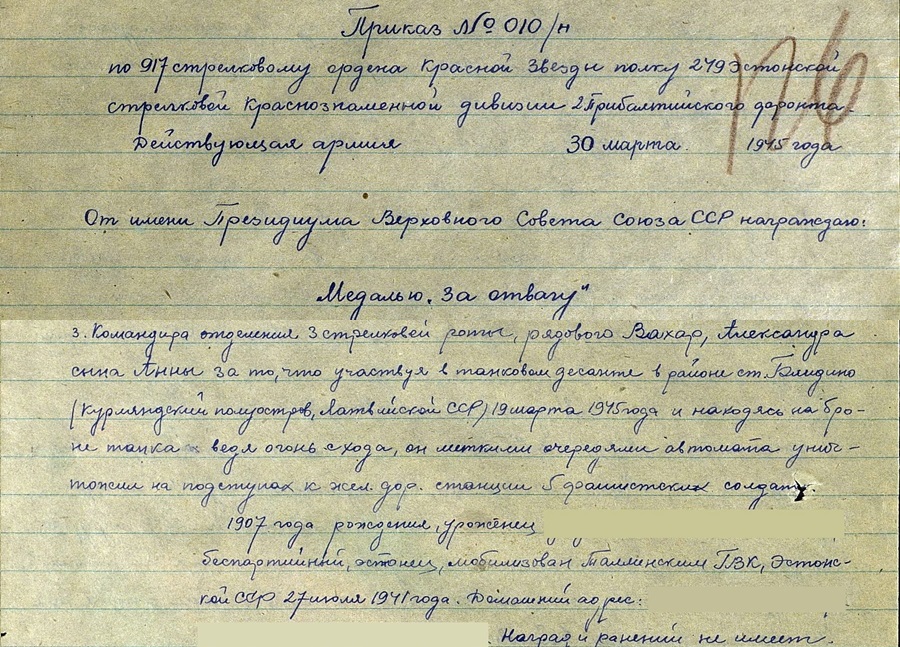 Приказ № 010/н
по 917 стрелковому ордена Красной Звезды полку 249 Эстонской
стрелковой Краснознаменной дивизии 2 Прибалтийского фронта
Действующая армия 30 марта 1945 года
От имени Президиума Верховного Совета Союза ССР награждаю:
Медалью „За отвагу"
3. Командира отделения 3 стрелковой роты, рядового Вахар, Александра
сына Анны за то, что участвуя в танковом десанте в районе ст. Блидино
(Курляндский полуостров, Латвийской ССР) 19 марта 1945 года и находясь на бро-
не танка ведя огонь с хода, он меткими очередями автомата унич-
тожил на подступах к жел. дор. станции 5 фашистских солдат.
1907 года рождения, уроженец
беспартийный, эстонец, мобилизован Таллинским ГВК, Эстонс-
кой ССР 27 июля 1941 года. Домашний адрес:
Наград и ранений не имеет.